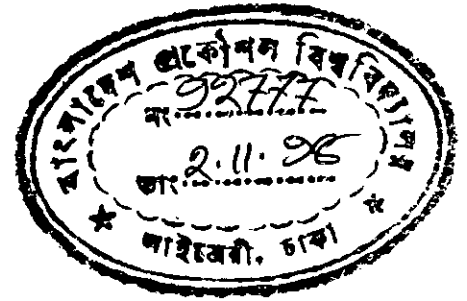 বাংলাদেশ প্রকৌশল বিশ্ববিদ্যালয়
নং 92777
তাং 2.11.96
লাইব্রেরী, ঢাকা